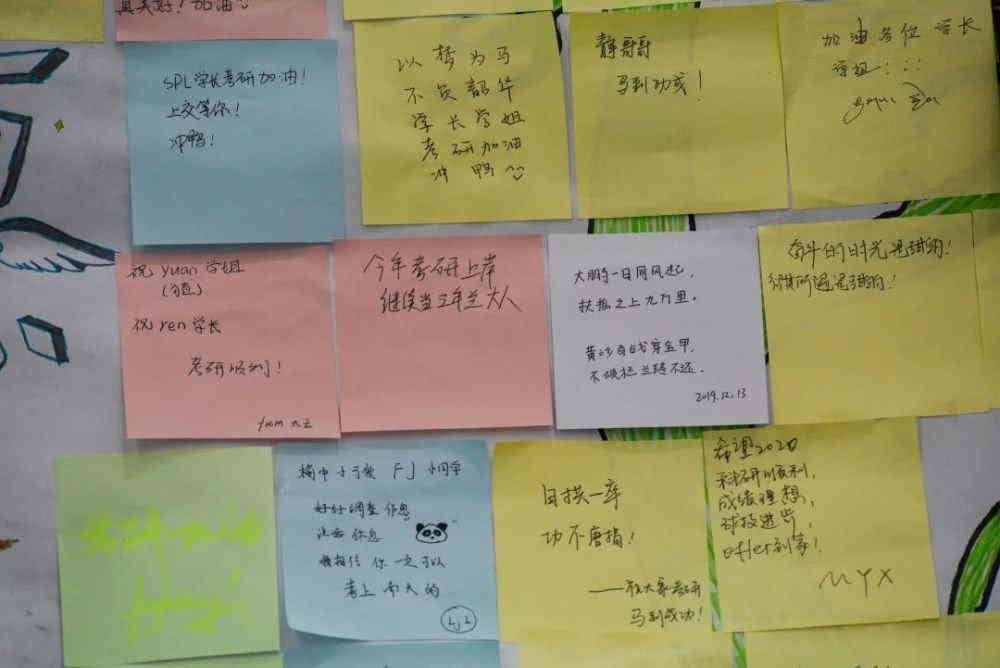 真美好！加油
SPL学长考研加油！
上交等你！
冲鸭！
以梦为马
不负韶华
学长学姐
考研加油
冲鸭
静哥哥
马到功成！
加油各位学长
学姐：：：
祝 yuan 学姐
祝 ren 学长
考研顺利！
from 大云
今年考研上岸
继续当三年兰大人
大鹏一日同风起，
扶摇之上九万里。
黄沙百战穿金甲，
不破楼兰终不还。
2019.12.13
奋斗的时光是甜的！
所遇是甜的！
榆中 FJ 小同学
好好调整作息
注意休息
要相信你一定可以
考上南大的
LJL
日拱一卒
功不唐捐！
——祝大家考研
马到成功！
希望2020
科研顺利，
成绩理想，
球技进步，
offer到家！
MYX